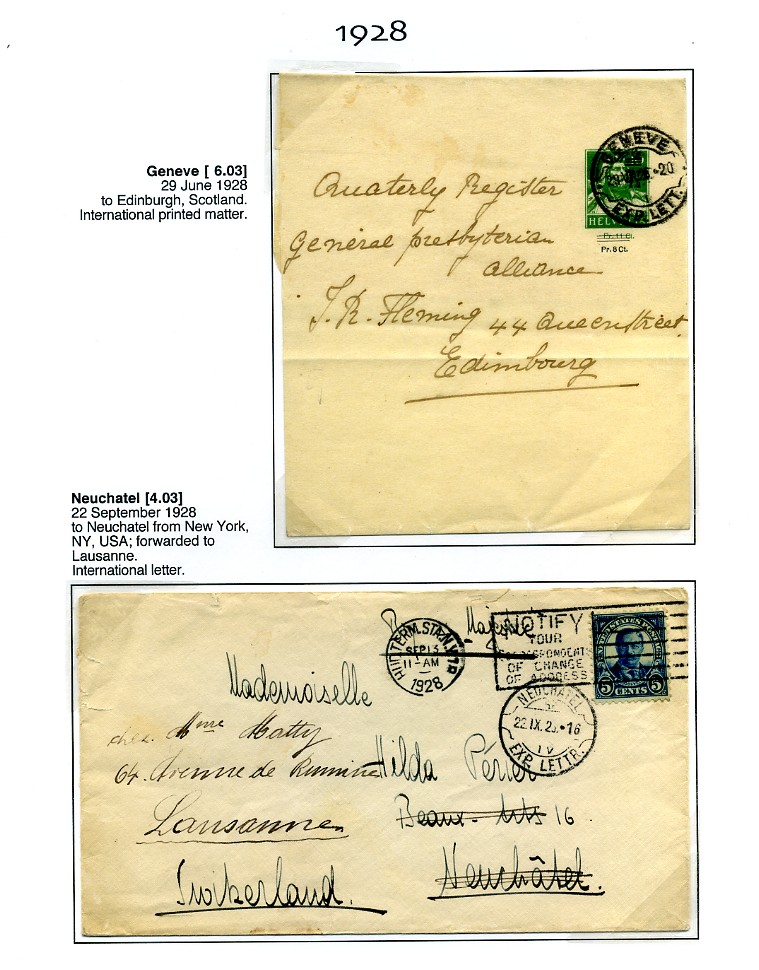 1928
Geneve [ 6.03]
29 June 1928
to Edinburgh, Scotland.
International printed matter.
GENEVE
EXP. LETT.
HELV
Fr. 11 Ct.
Pr. 8 Ct.
Quaterly Register
Général presbyterian
alliance
J. R. Fleming 44 Queen street
Edimbourg
Neuchatel [4.03]
22 September 1928
to Neuchatel from New York,
NY, USA; forwarded to
Lausanne.
International letter.
Majestic
HUD. TERM. STA. N.Y.
SEP 13
11-AM
1928
NOTIFY
YOUR
CORRESPONDENTS
OF CHANGE
OF ADDRESS
UNITED STATES POSTAGE
5 CENTS 5
NEUCHATEL
22.IX.28.-16
IV
EXP. LETTR.
Mademoiselle
chez Mme Matty
64. Avenue de Rumine
Hilda Périer
Beaux-Arts 16.
Lausanne
Neuchâtel.
Switzerland.